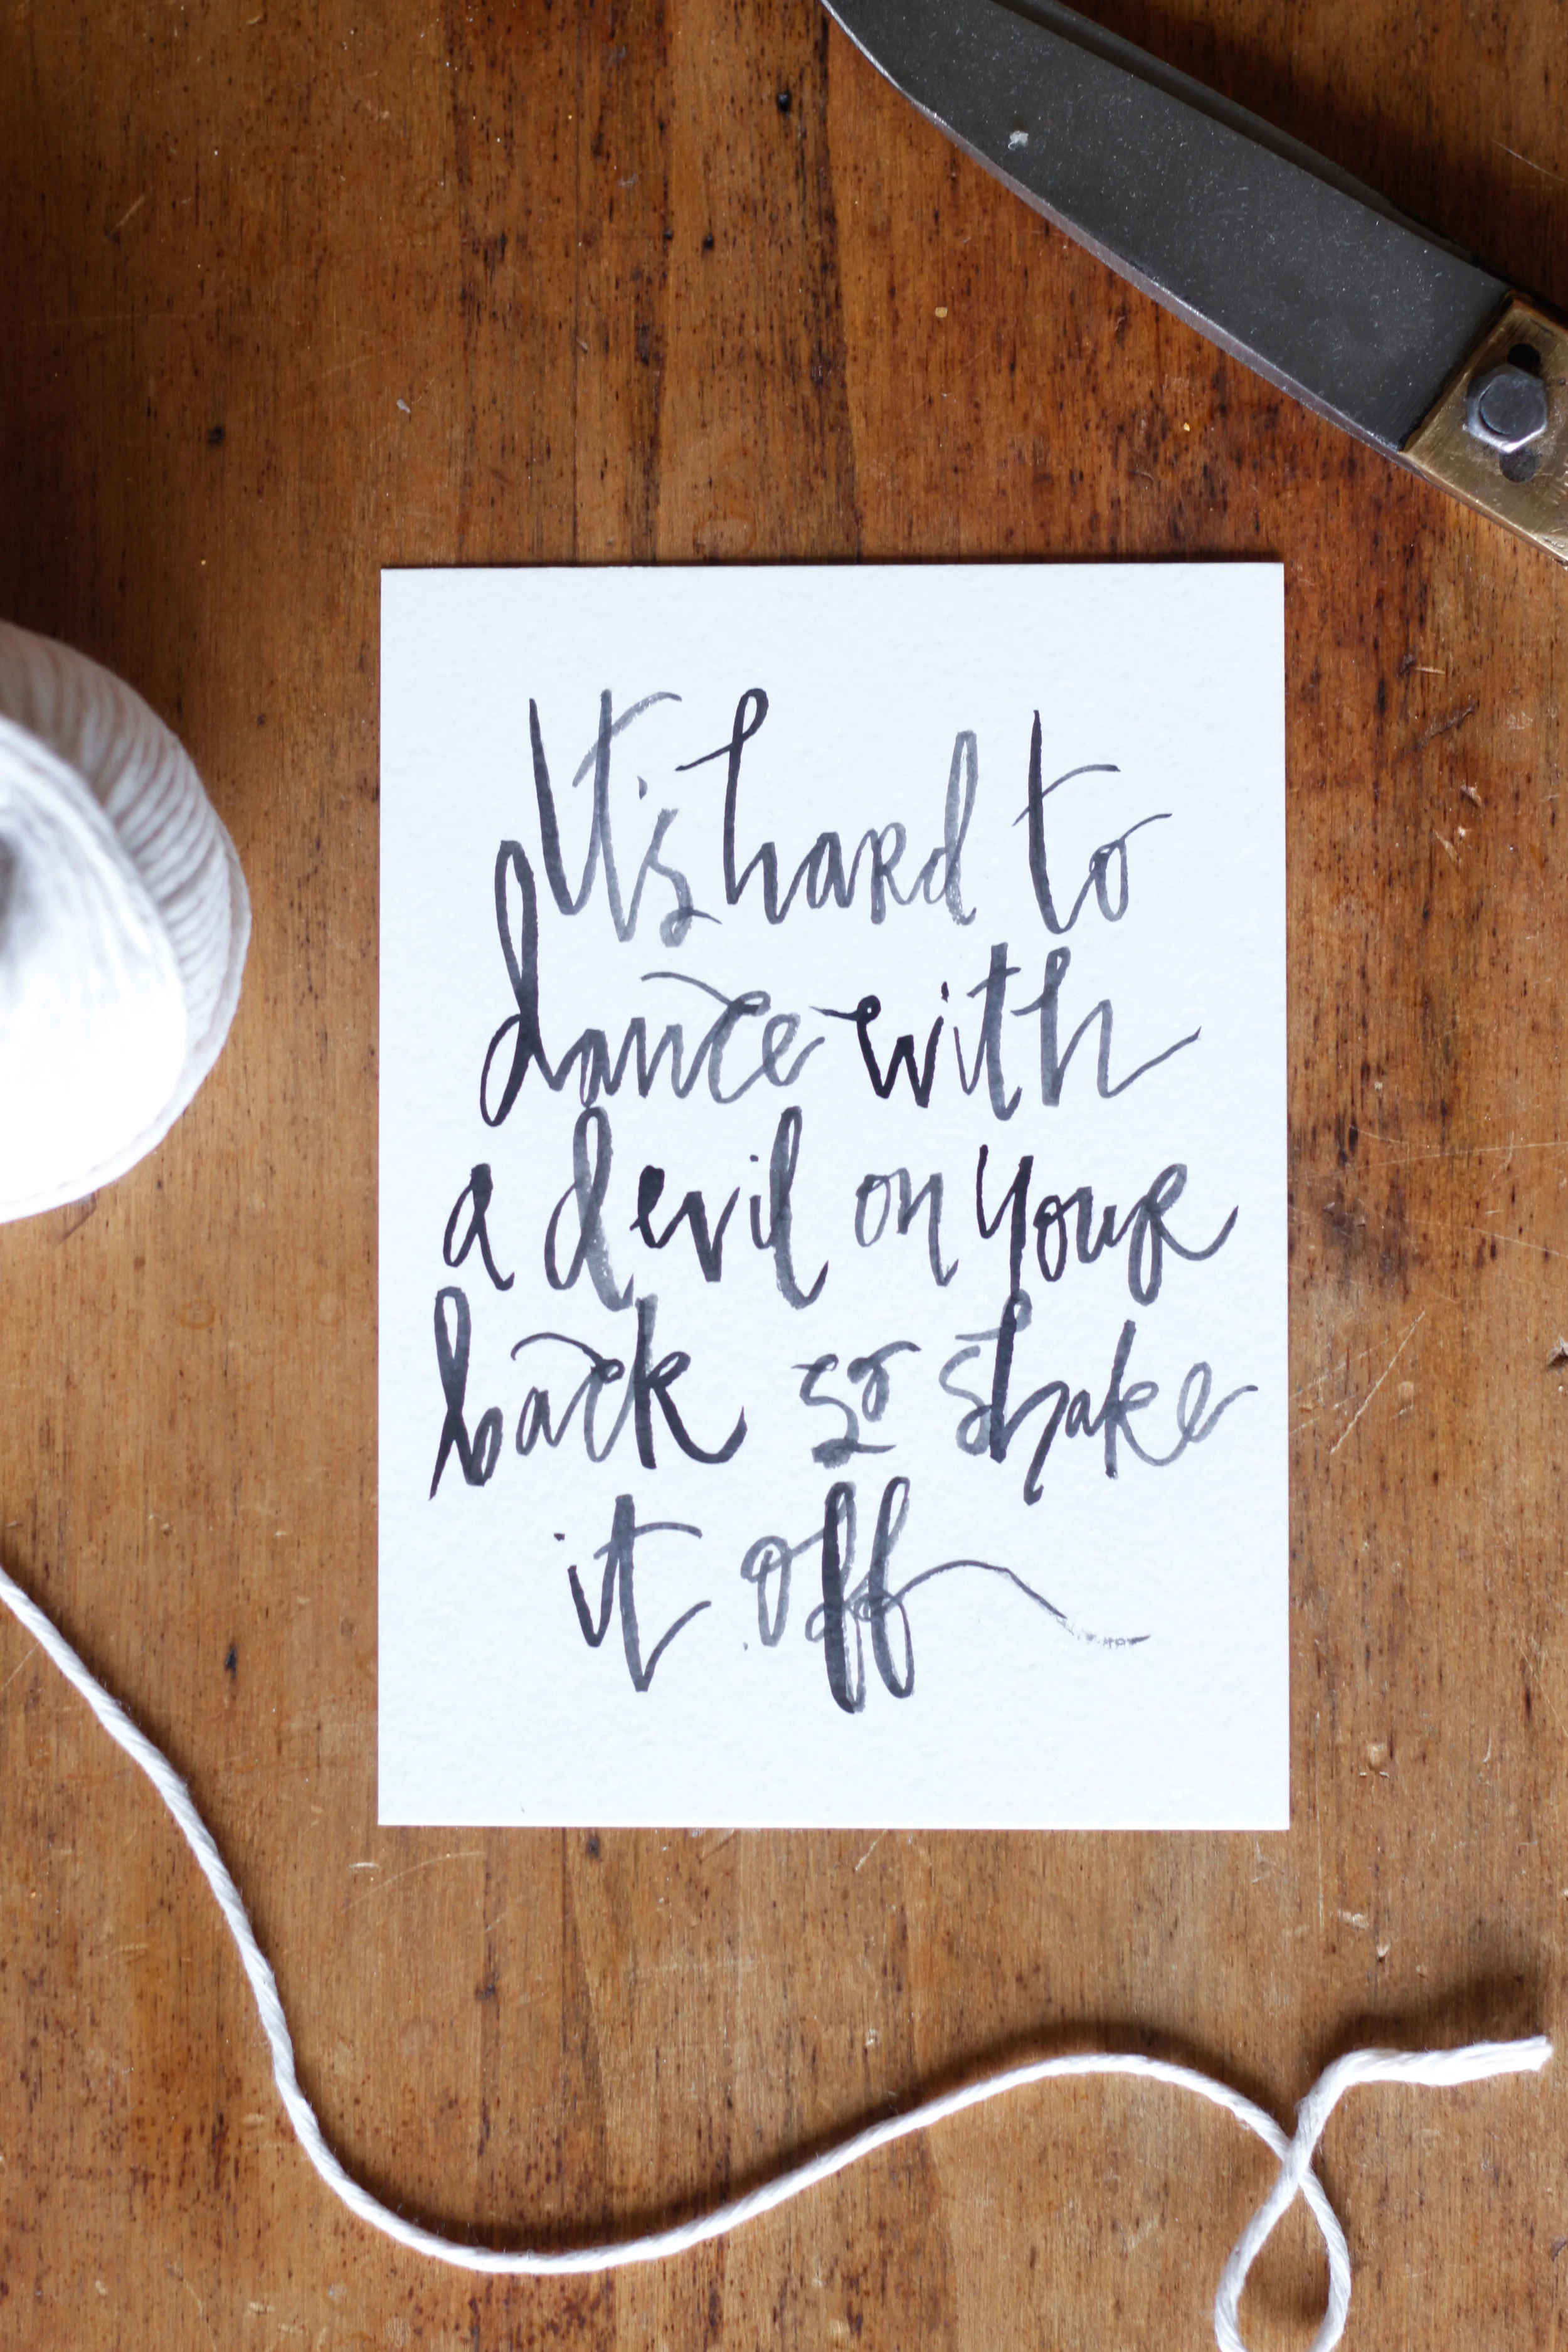 It's hard to
dance with
a devil on your
back so shake
it off